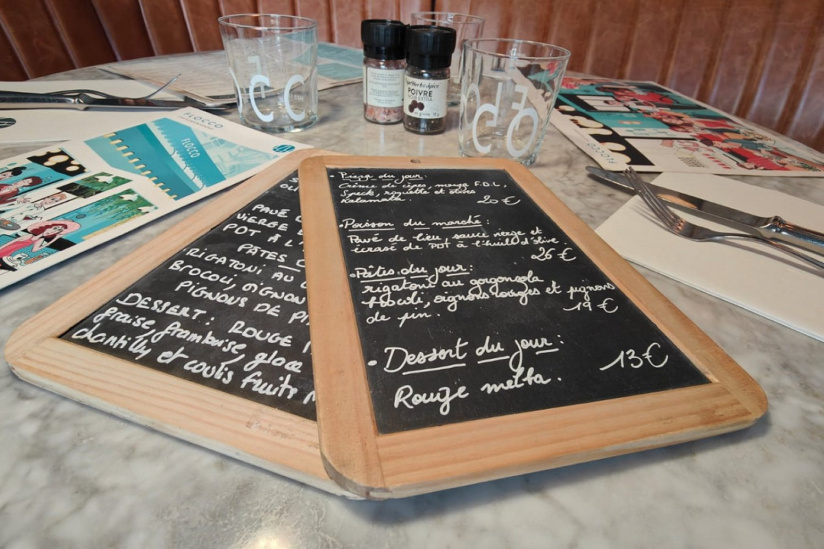 POIVRE
FLOCCO
PAVÉ
VIERGE
POT À L'
PÂTES
RIGATONI AU
BROCOLI, OIGNON
PIGNONS DE
DESSERT : ROUGE
fraise, framboise, glace
chantilly et coulis fruits
• Pizza du jour :
Crème de cèpes, mozza F.D.L,
Speck, roquette et olives
Kalamata. 20 €
• Poisson du marché :
Pavé de lieu, sauce vierge et
écrasé de POT à l'huile d'olive
26 €
• Pâtes du jour :
rigatoni au gorgonzola
brocoli, oignons rouges et pignons
de pin. 19 €
• Dessert du jour :
Rouge melba. 13 €